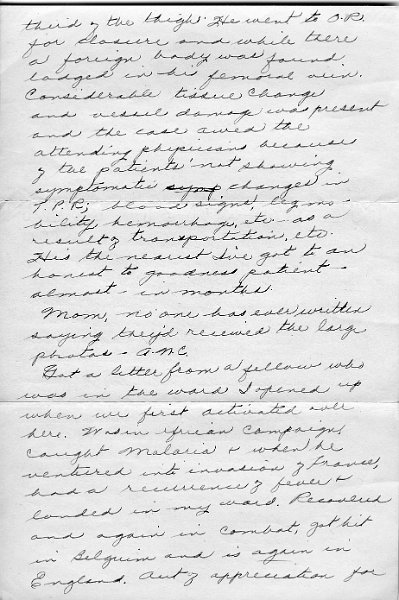 third of the thigh. He went to O.R.
for closure and while there
a foreign body was found
lodged in his femoral vein.
Considerable tissue change
and vessel damage was present
and the case awed the
attending physicians because
of the patients' not showing
symptomatic symp changes in
T.P.R.; blood signs, leg mo-
bility, hemorrhag, etc. as a
result of transportation, etc.
His the nearest I've got to an
honest to goodness patient -
almost - in months.
Mom, no one has ever written
saying they'd received the large
photos - A.N.C.
Got a letter from a fellow who
was in the ward I opened up
when we first activated over
here. Was in African Campaign,
caught Malaria & when he
ventured into invasion of France,
had a recurrence of fever &
landed in my ward. Recovered
and again in combat, got hit
in Belguim and is again in
England. Out of appreciation for